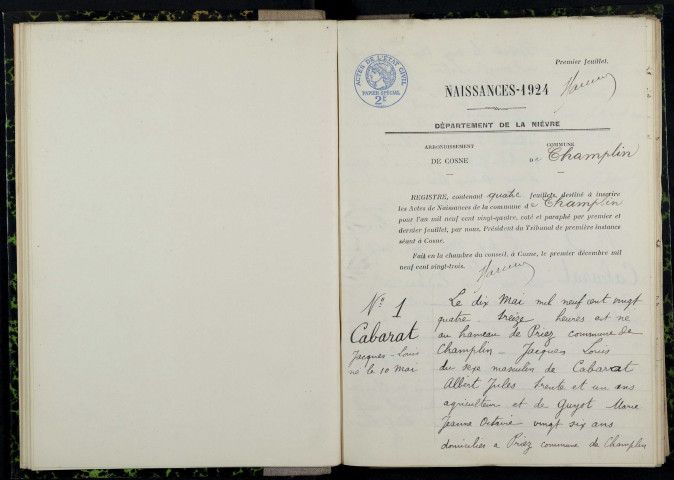 ACTES DE L'ÉTAT CIVIL
PAPIER SPÉCIAL
2E
Premier feuillet.
NAISSANCES-1924
DÉPARTEMENT DE LA NIÈVRE
ARRONDISSEMENT
DE COSNE
COMMUNE
De Champlin
REGISTRE, contenant quatre feuillets, destiné à inscrire
les Actes de Naissances de la commune de Champlin
pour l'an mil neuf cent vingt-quatre, coté et paraphé par premier et
dernier feuillet, par nous, Président du Tribunal de première instance
séant à Cosne.
Fait en la chambre du conseil, à Cosne, le premier décembre mil
neuf cent vingt-trois.
No 1
Cabarat
Jacques-Louis
né le 10 Mai
Le dix Mai mil neuf cent vingt
quatre treize heures est né
au hameau de Priez commune de
Champlin - Jacques Louis
du sexe masculin de Cabarat
Albert Jules trente et un ans
agriculteur et de Guyot Marie
Jeanne Octavie vingt six ans
domiciliés a Priez commune de Champlin